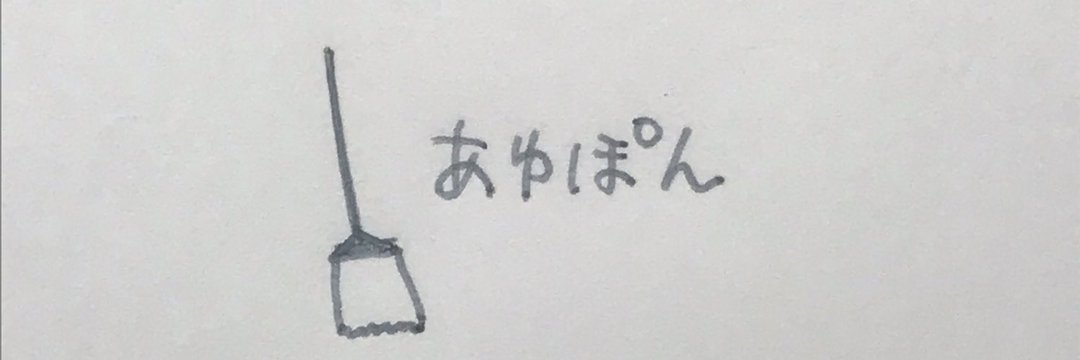 あゆぽん